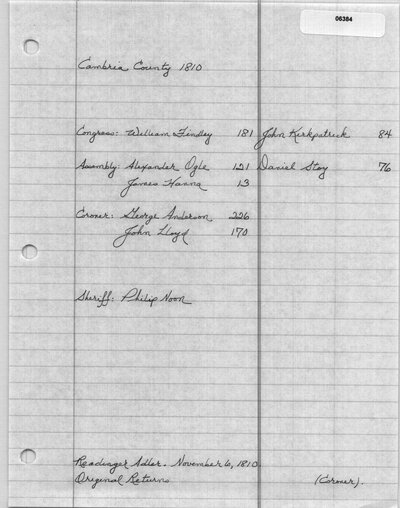 06384
Cambria County 1810
Congress: William Findley 181 John Kirkpatrick 84
Assembly: Alexander Ogle 121 Daniel Stoy 76
James Hanna 13
Coroner: George Anderson 226
John Lloyd 170
Sheriff: Philip Noon
Readinger Adler. November 6, 1810.
Original Returns (Coroner).